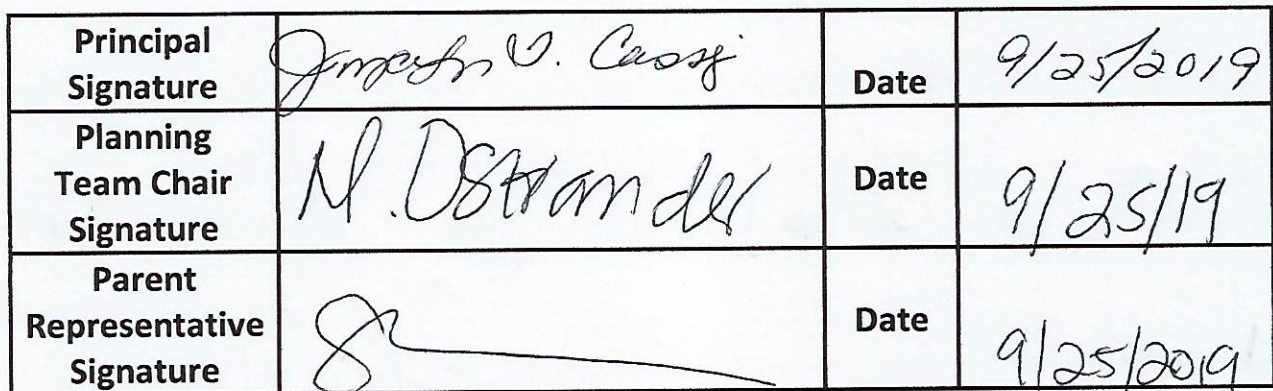 Principal
Signature
V.
Date
9/25/2019
Planning
Team Chair
Signature
M. Ostrander
Date
9/25/19
Parent
Representative
Signature
Date
9/25/2019